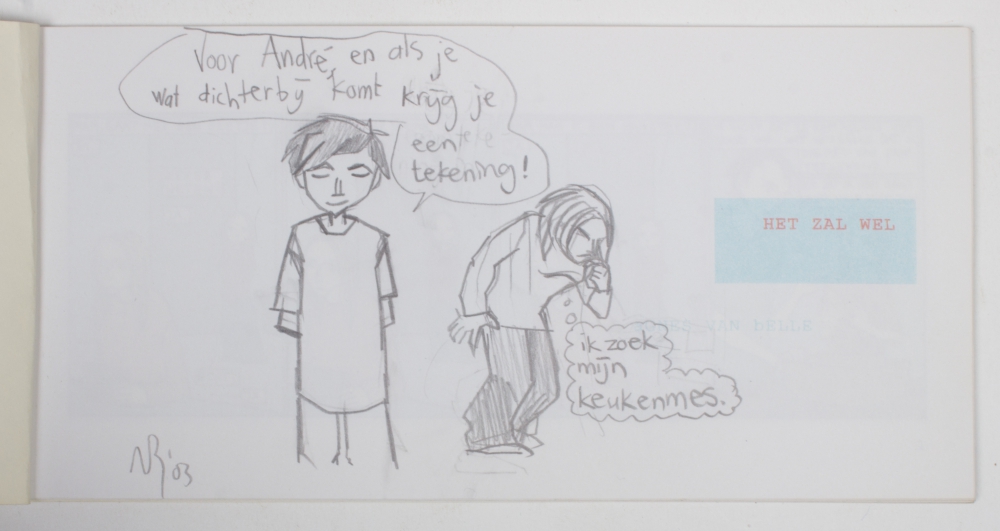 Voor André, en als je
wat dichterbij komt krijg je
een
tekening!
HET ZAL WEL
VAN
ik zoek
mijn
keukenmes.
'03